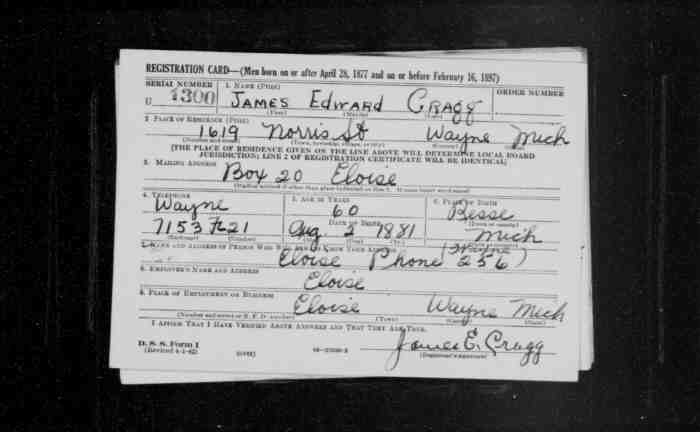 REGISTRATION CARD—(Men born on or after April 28, 1877 and on or before February 16, 1897)
SERIAL NUMBER 1. NAME (Print) ORDER NUMBER
U 1300 JAMES EDWARD CRAGG
(First) (Middle) (Last)
2. PLACE OF RESIDENCE (Print)
1619 Norris St Wayne Mich
(Number and street) (Town, township, village, or city) (County) (State)
[THE PLACE OF RESIDENCE GIVEN ON THE LINE ABOVE WILL DETERMINE LOCAL BOARD
JURISDICTION; LINE 2 OF REGISTRATION CERTIFICATE WILL BE IDENTICAL]
3. MAILING ADDRESS
Box 20 Eloise
4. TELEPHONE 5. AGE IN YEARS 6. PLACE OF BIRTH
Wayne 60
DATE OF BIRTH (Town or county)
7153 Aug 2 1881 Mich
(Exchange) (Number) (Mo.) (Day) (Yr.)
7. NAME AND ADDRESS OF PERSON WHO WILL ALWAYS KNOW YOUR ADDRESS (Wayne
Eloise Phone 256)
8. EMPLOYER'S NAME AND ADDRESS
Eloise
9. PLACE OF EMPLOYMENT OR BUSINESS
Eloise Wayne Mich
(Number and street or R. F. D. number) (Town) (County) (State)
I AFFIRM THAT I HAVE VERIFIED ABOVE ANSWERS AND THAT THEY ARE TRUE.
D. S. S. Form 1
(Revised 4-1-42) (over) James E. Cragg
(Registrant's signature)